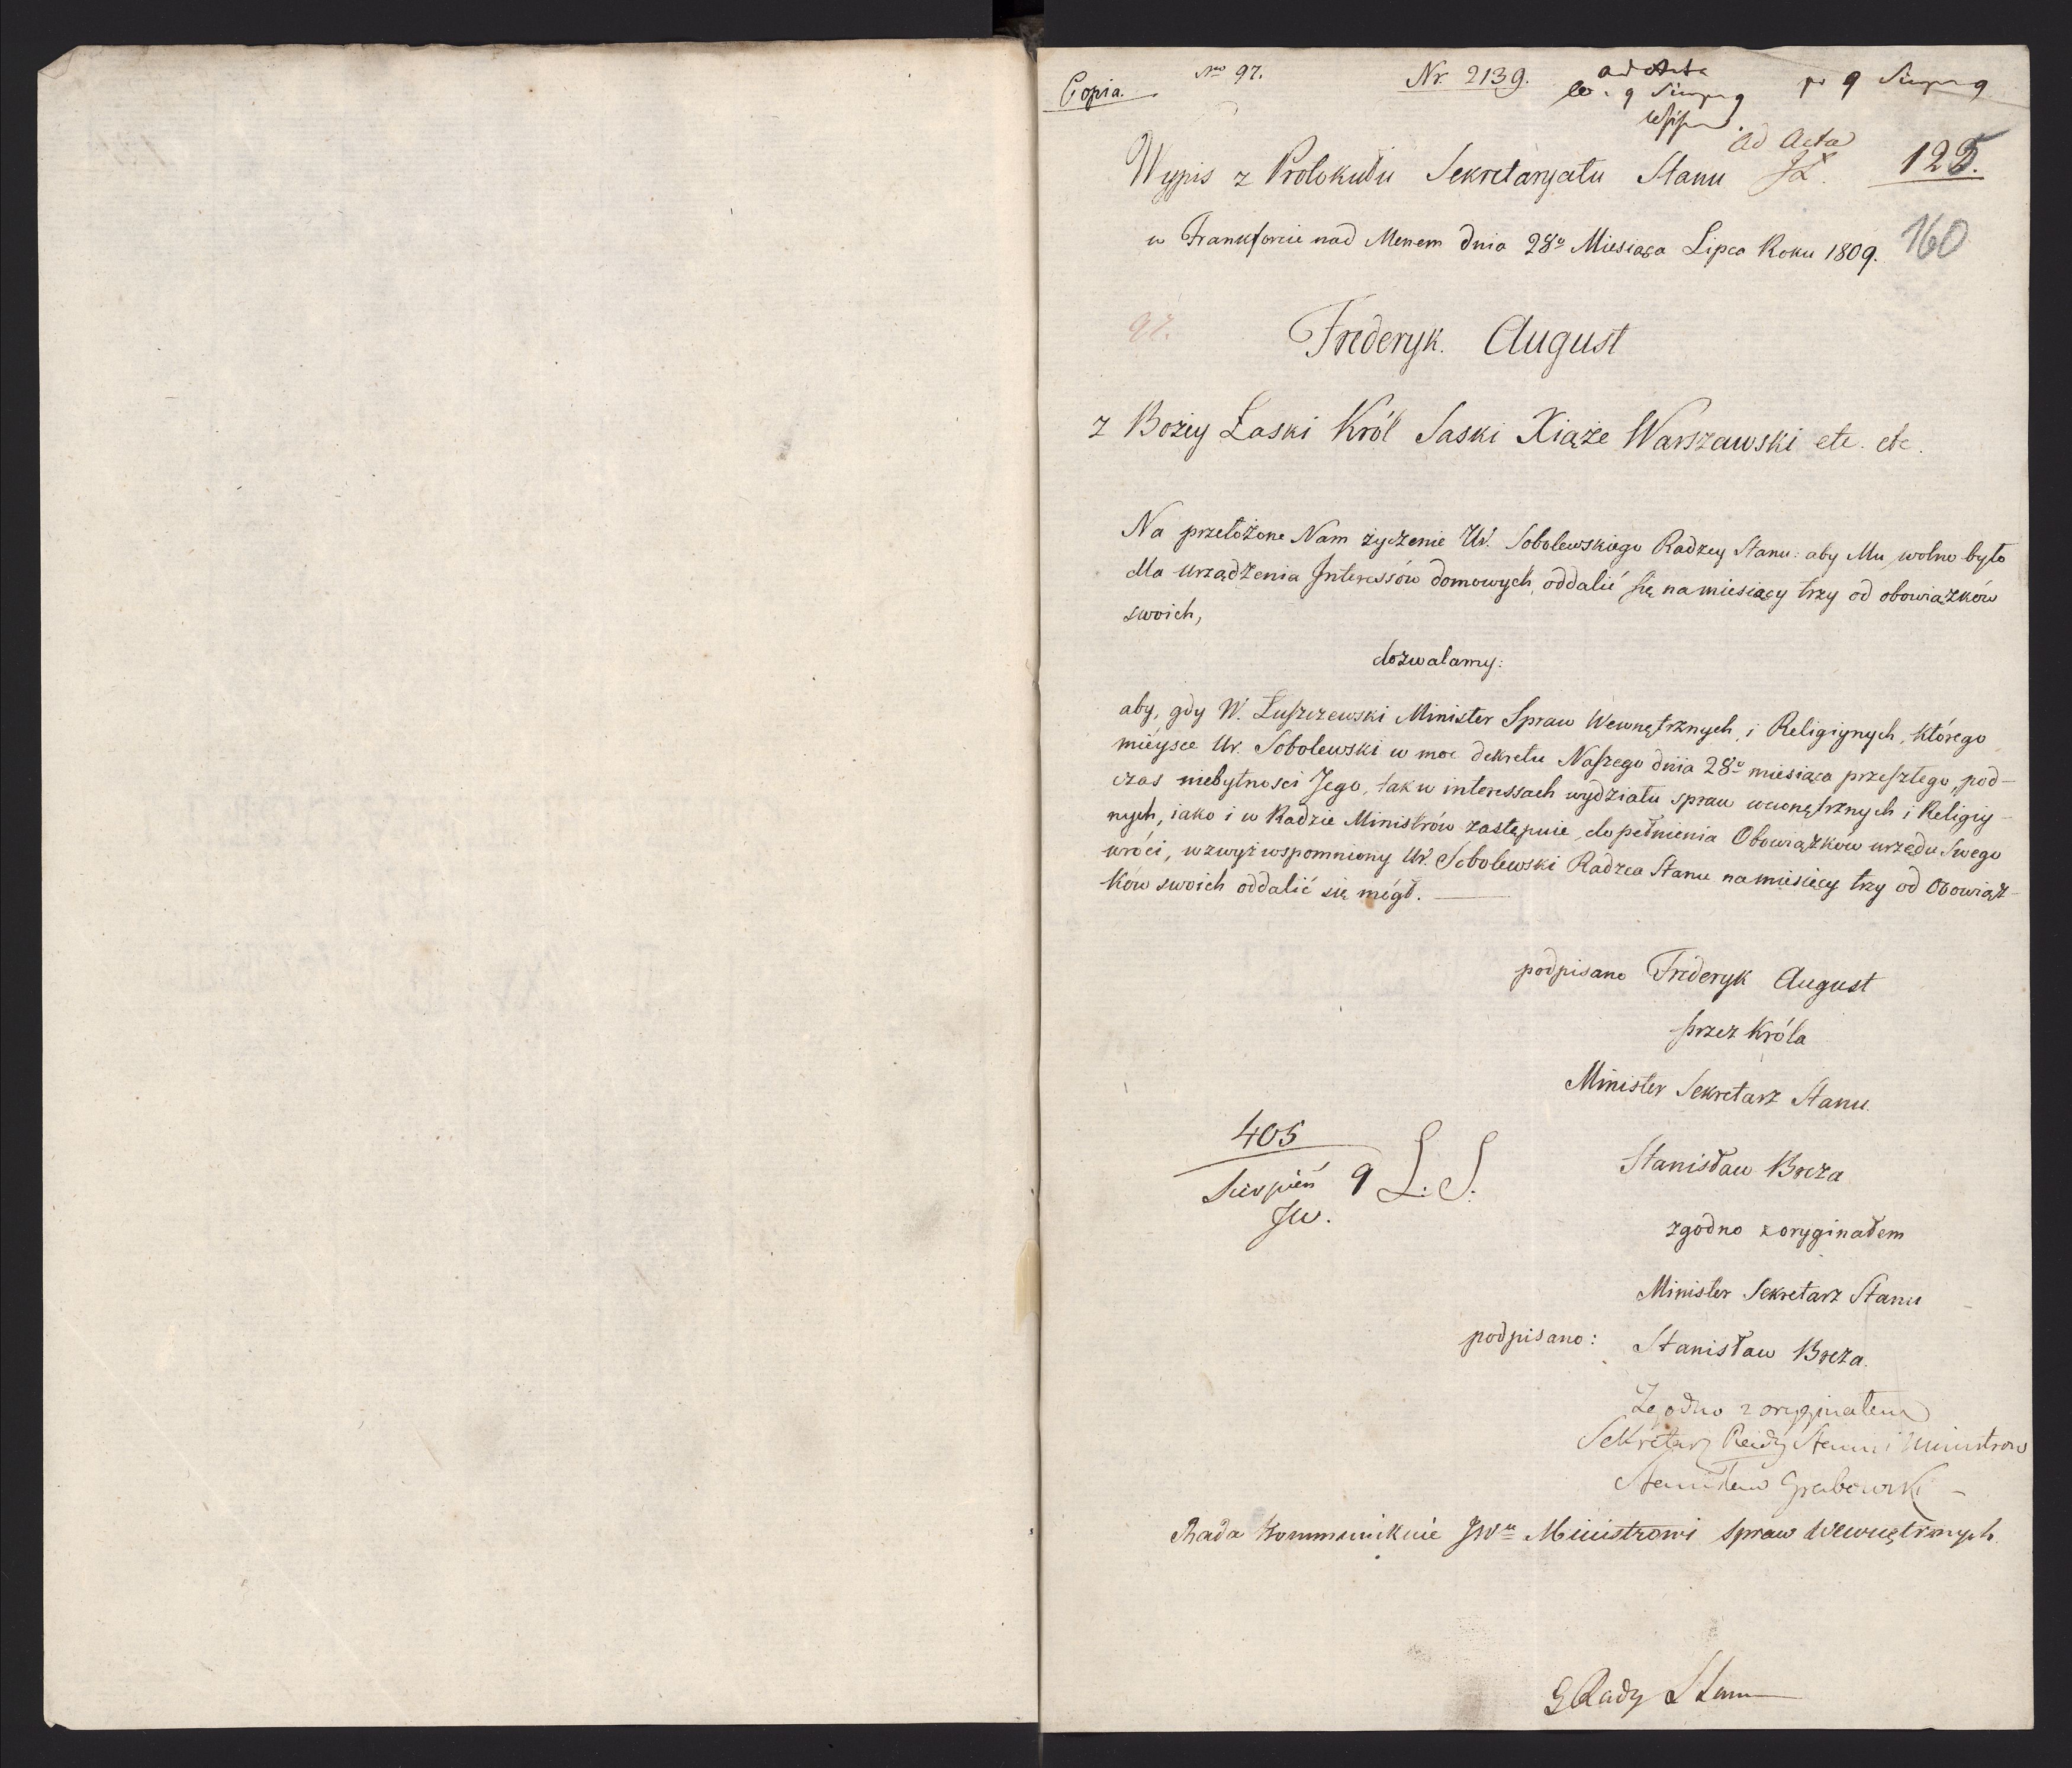 Copia. Nro 97. Nr. 2139. ad Acta
9 Sierp. 9
Ad Acta
Wypis z Protokułu Sekretaryatu Stanu 125.
w Frankforcie nad Menem dnia 28o Miesiąca Lipca Roku 1809. 160
97.
Frederyk August
z Bożey Łaski Król Saski Xiąże Warszawski etc. etc.
Na przełożone Nam życzenie Ur. Sobolewskiego Radzcy Stanu: aby Mu wolno było
dla urządzenia Interessów domowych, oddalić się na miesięcy trzy od obowiązków
swoich,
dozwalamy:
aby, gdy W. Łuszczewski Minister Spraw Wewnętrznych, i Religiynych, którego
mieysce Ur. Sobolewski w moc dekretu Naszego dnia 28o miesiąca przeszłego, pod-
czas niebytnosci Jego, tak w interessach wydziału spraw wewnętrznych i Religiy-
nych, iako i w Radzie Ministrów zastępuie, do pełnienia Obowiązków urzędu Swego
wróci, wzwyż wspomniony Ur. Sobolewski Radzca Stanu na miesięcy trzy od Obowiąz-
ków swoich oddalić się mógł.
podpisano Frederyk August
przez Króla
Minister Sekretarz Stanu.
405
Sierpień 9 L: S:
JW.
Stanisław Breza
zgodno z oryginałem
Minister Sekretarz Stanu
podpisano: Stanisław Breza.
Zgodno z oryginałem
Sekretarz Rady Stanu i Ministrow
Stanisław Grabowski
Rada kommunikuie JWu Ministrowi spraw Wewnętrznych.
Rady Stanu